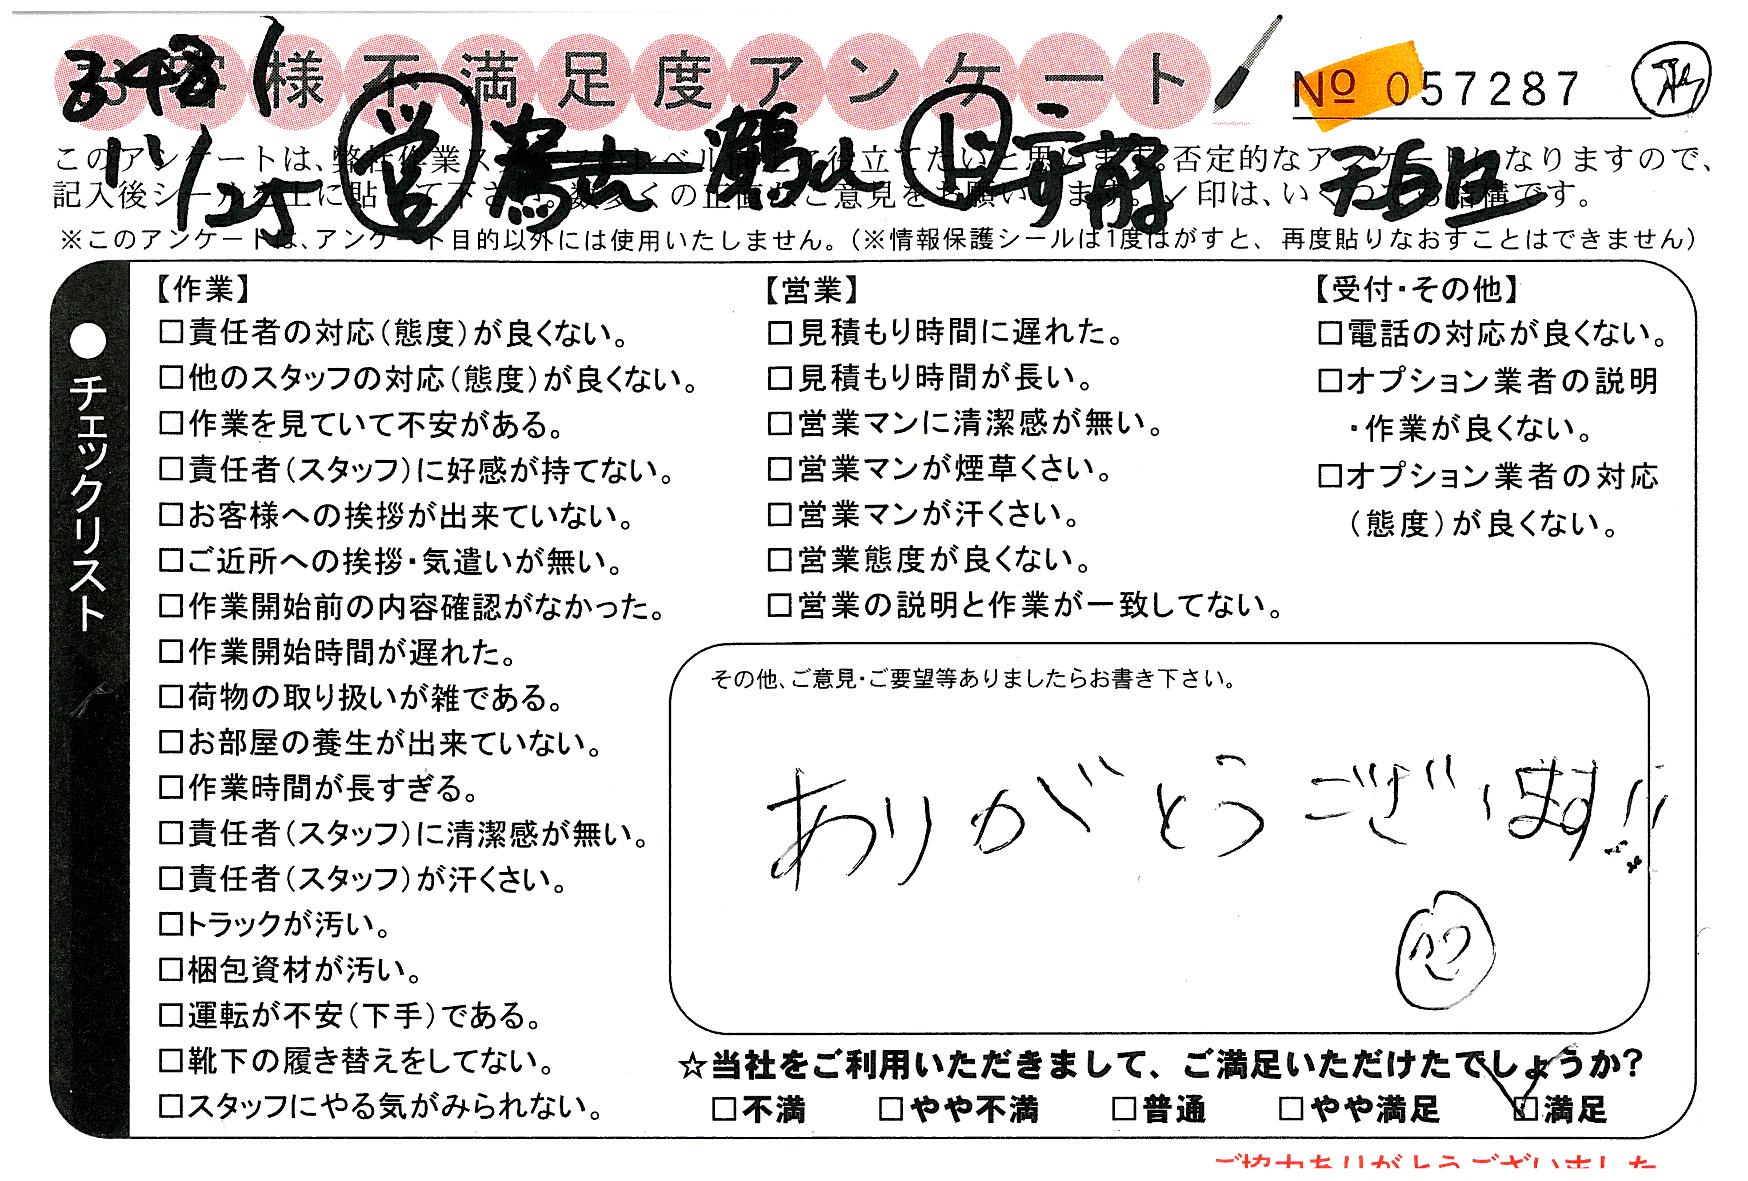 お客様不満足度アンケート
№ 057287
このアンケートは、弊社作業スタッフのレベル向上に役立てたいと思います。否定的なアンケートになりますので、
記入後シールを上に貼って下さい。数多くの正直なご意見をお願いします。／印は、いくつでも結構です。
※このアンケートは、アンケート目的以外には使用いたしません。（※情報保護シールは1度はがすと、再度貼りなおすことはできません）
営
天白区
●チェックリスト
【作業】
□責任者の対応（態度）が良くない。
□他のスタッフの対応（態度）が良くない。
□作業を見ていて不安がある。
□責任者（スタッフ）に好感が持てない。
□お客様への挨拶が出来ていない。
□ご近所への挨拶・気遣いが無い。
□作業開始前の内容確認がなかった。
□作業開始時間が遅れた。
□荷物の取り扱いが雑である。
□お部屋の養生が出来ていない。
□作業時間が長すぎる。
□責任者（スタッフ）に清潔感が無い。
□責任者（スタッフ）が汗くさい。
□トラックが汚い。
□梱包資材が汚い。
□運転が不安（下手）である。
□靴下の履き替えをしてない。
□スタッフにやる気がみられない。
【営業】
□見積もり時間に遅れた。
□見積もり時間が長い。
□営業マンに清潔感が無い。
□営業マンが煙草くさい。
□営業マンが汗くさい。
□営業態度が良くない。
□営業の説明と作業が一致してない。
【受付・その他】
□電話の対応が良くない。
□オプション業者の説明
・作業が良くない。
□オプション業者の対応
（態度）が良くない。
その他、ご意見・ご要望等ありましたらお書き下さい。
ありがとうございます!!
☆当社をご利用いただきまして、ご満足いただけたでしょうか？
□不満 □やや不満 □普通 □やや満足 ☑満足
ご協力ありがとうございました